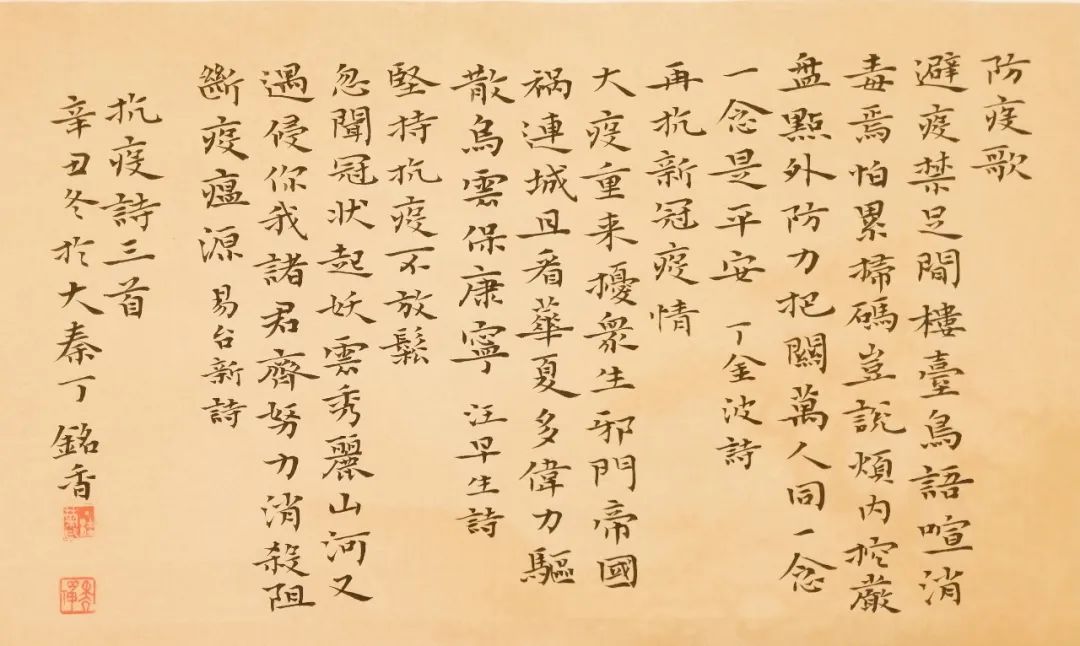 防疫歌
避疫禁足間樓臺鳥語喧消
毒焉怕累掃碼豈說煩内控嚴
盘點外防力把關萬人同一念
一念是平安 丁金波詩
再抗新冠疫情
大疫重来擾衆生邪門帝國
禍連城且看華夏多偉力驅
散烏雲保康寧 汪早生詩
堅持抗疫不放鬆
忽聞冠状起妖雲秀麗山河又
遇侵你我諸君齊努力消殺阻
斷疫瘟源 易台新詩
抗疫詩三首
辛丑冬於大秦丁銘香